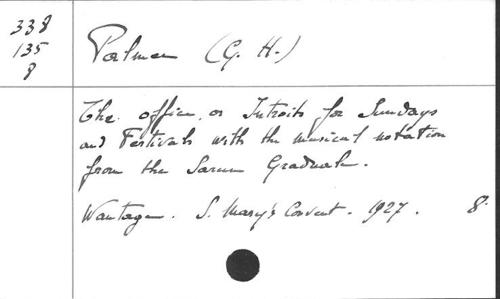 338
135
8
Palmer (G. H.)
The office, or Introits for Sundays
and Festivals with the musical notation
from the Sarum Graduale.
Wantage. S. Mary's Convent. 1927. 8.